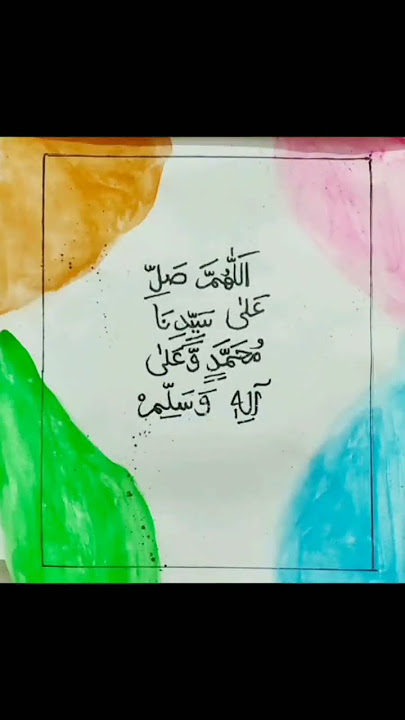 اَللّٰهُمَّ صَلِّ
عَلٰى سَيِّدِنَا
مُحَمَّدٍ وَّعَلٰى
آلِهٖ وَسَلِّمْ